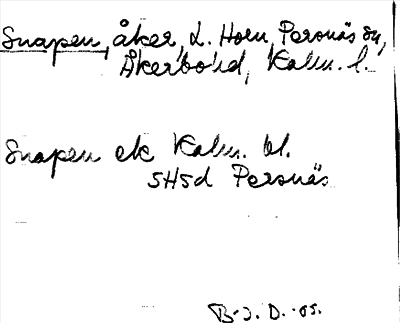 Snapen, åker, L. Horn, Persnäs sn,
Åkerbo hd, Kalm. l.
Snapen ek Kalm. bl.
5H5d Persnäs
B-J. D. -05.